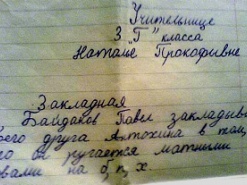 Учительнице
3 "Г" класса
Наталье Прокофивне
Закладная
Байдаков Павел закладыв
оего друга Антохина в том,
что он ругается матными
овами на б, п, х.